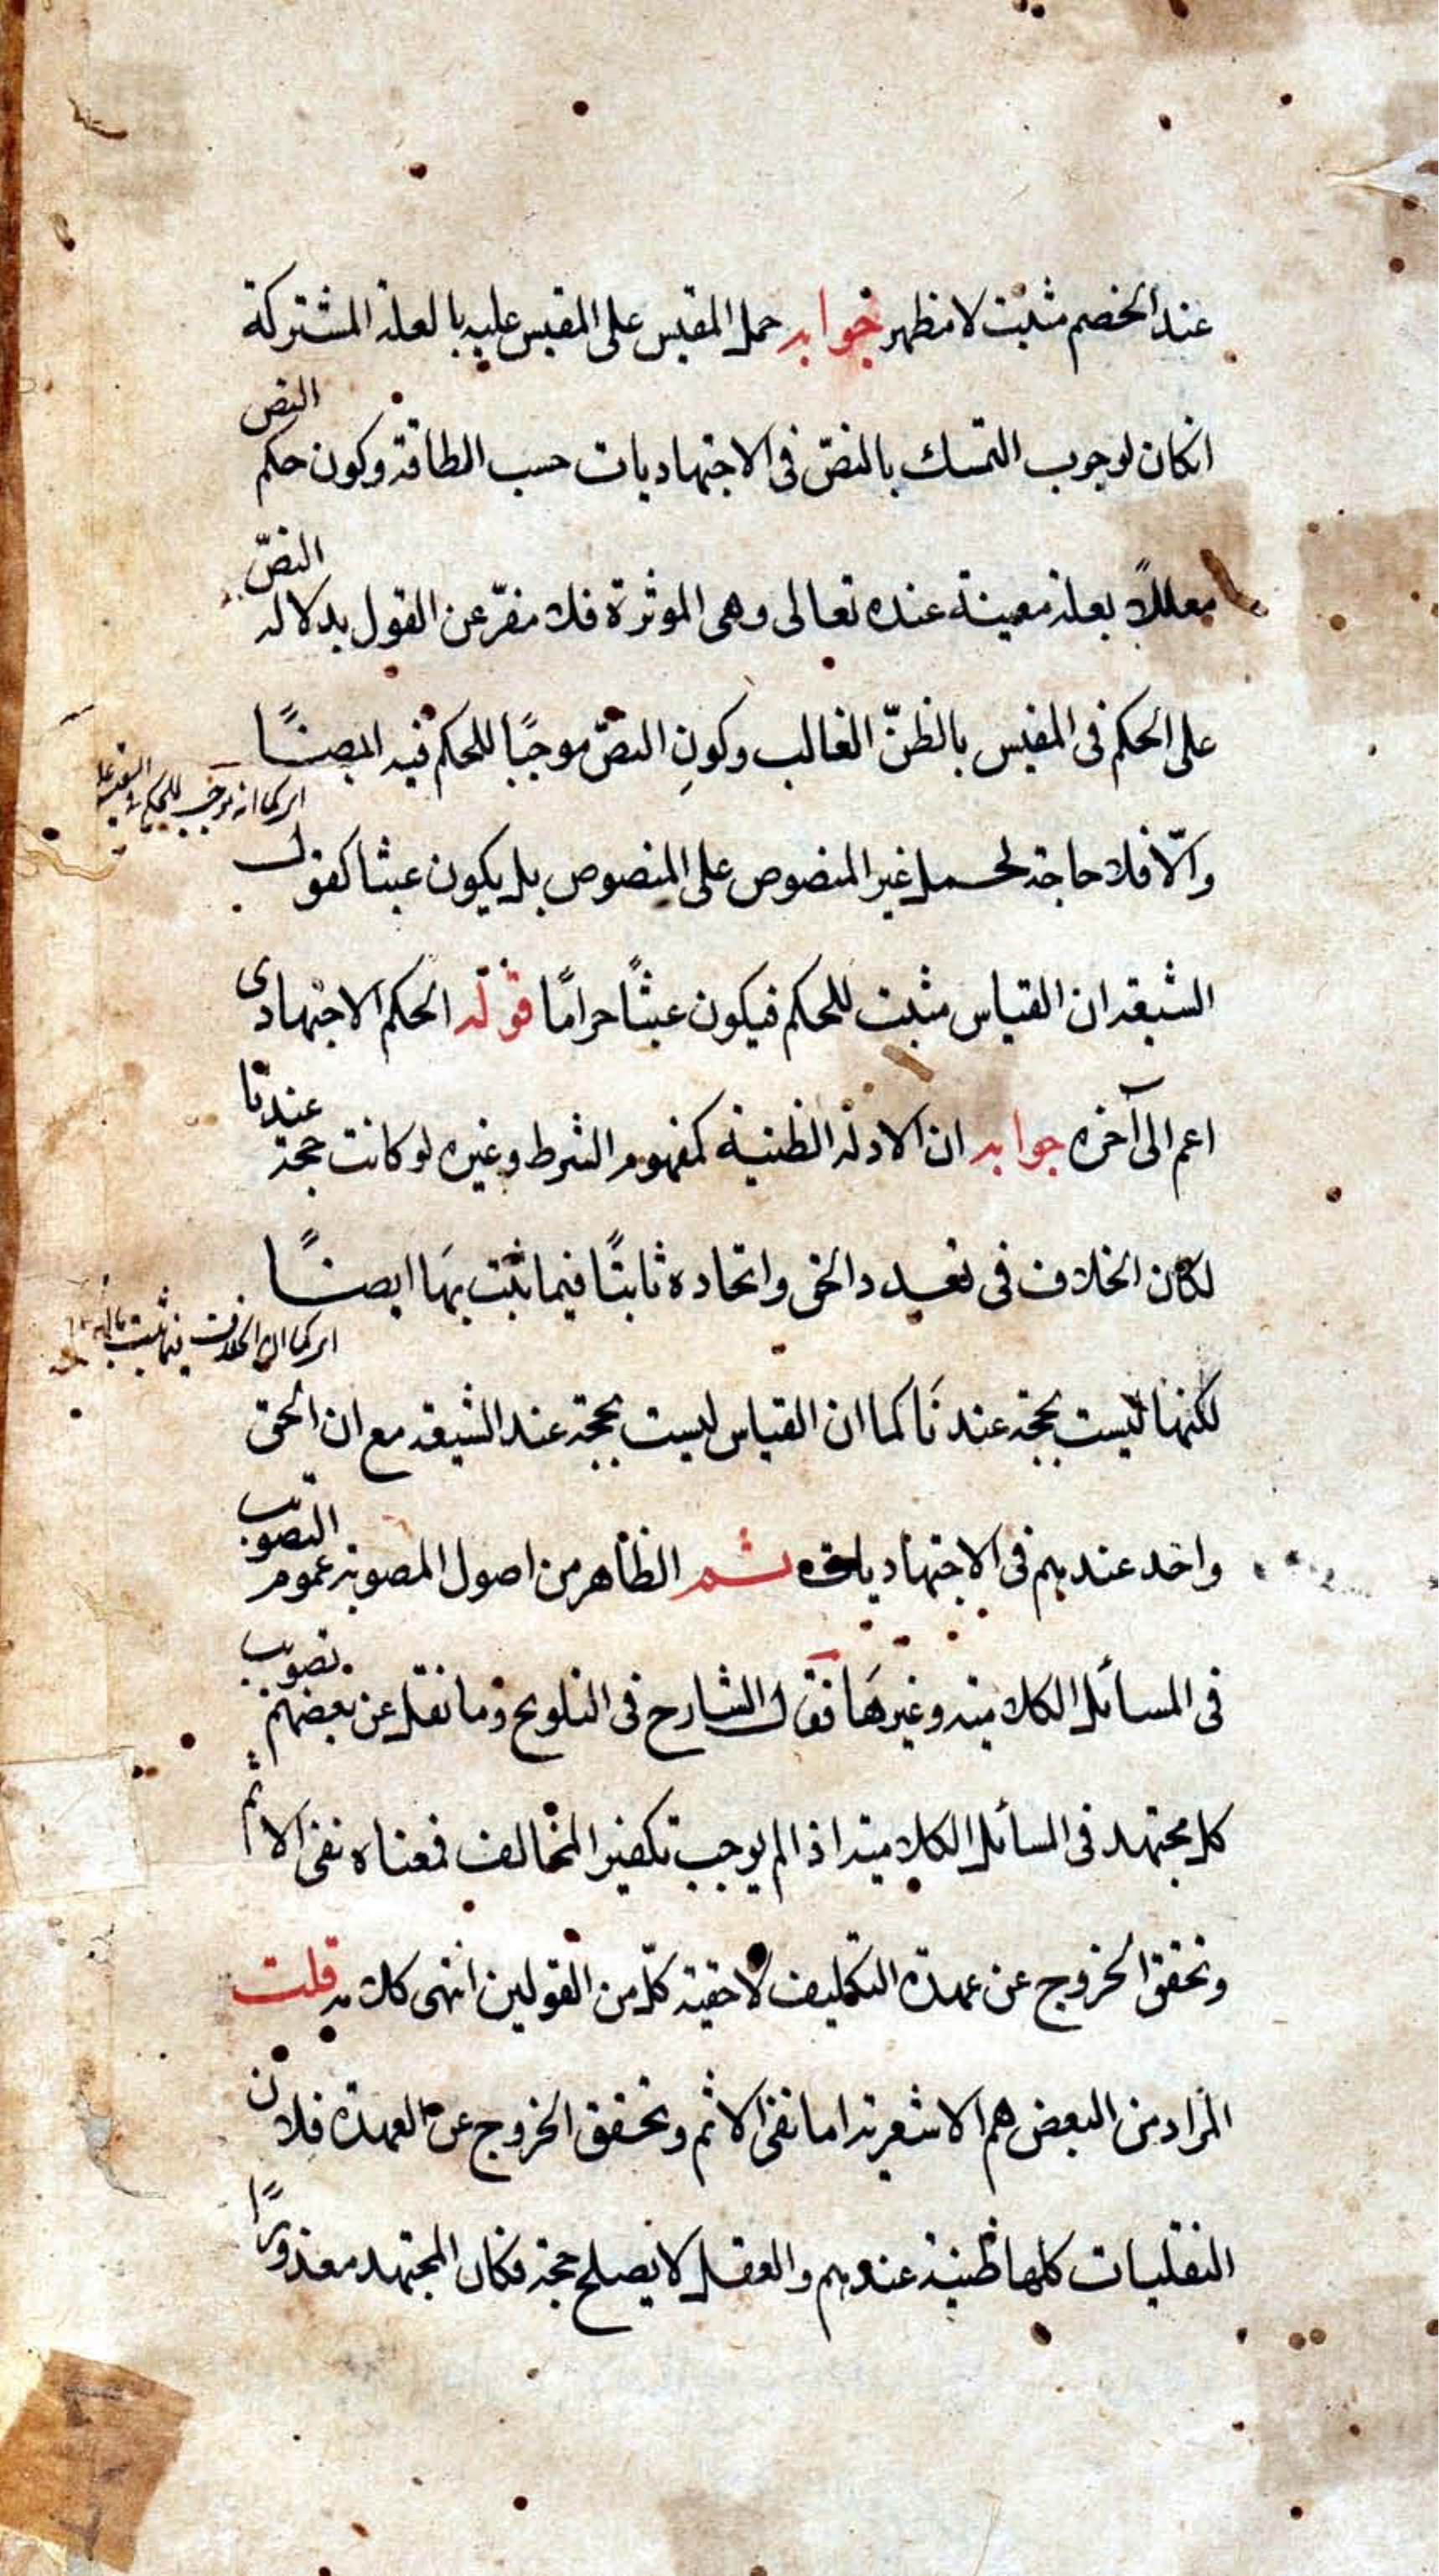 عند الخصم مثبت لا مظهر جوابه حمل المقيس على المقيس عليه بالعلة المشتركة
انكان لوجوب التمسك بالنصّ فى الاجتهاديات حسب الطاقة وكون حكم النص
معللاً بعلة معينة عنده تعالى وهى الموثرة فلا مفرّ عن القول بدلالة النصّ
على الحكم فى المقيس بالظنّ الغالب وكونِ النصّ موجبًا للحكم فيه ايضًا
اى كما انه موجب للحكم فى المقيس عليه
والّا فلا حاجة لحمل غير المنصوص على المنصوص بل يكون عبثا كقول
الشيعة ان القياس مثبت للحكم فيكون عبثًا حرامًا قوله الحكم الاجتهادى
اعم الى آخره جوابه ان الادلة الظنية كمفهوم الشرط وغيره لو كانت حجة عندنا
لكان الخلاف فى تعدد الحق واتحاده ثابتًا فيما ثبت بها ايضًا
اى كما ان الخلاف فيما ثبت
لكنها ليست بحجة عندنَا كما ان القياس ليست بحجة عند الشيعة مع ان الحق
واحد عندهم فى الاجتهاديات ثم الظاهر من اصول المصوبة عموم التصويب
فى المسائل الكلامية وغيرهَا فقول الشارح فى التلويح وما نقل عن بعضهم تصويب
كل مجتهد فى المسائل الكلامية اذا لم يوجب تكفير المخالف فمعناه نفى الاثم
وتحقق الخروج عن عهدة التكليف لا حقية كلّ من القولين انتهى كلامه قلت
المراد من البعض هم الاشعرية اما نفى الاثم وتحقق الخروج عن العهدة فلان
النقليات كلها ظنية عندهم والعقل لا يصلح حجة فكان المجتهد معذورًا